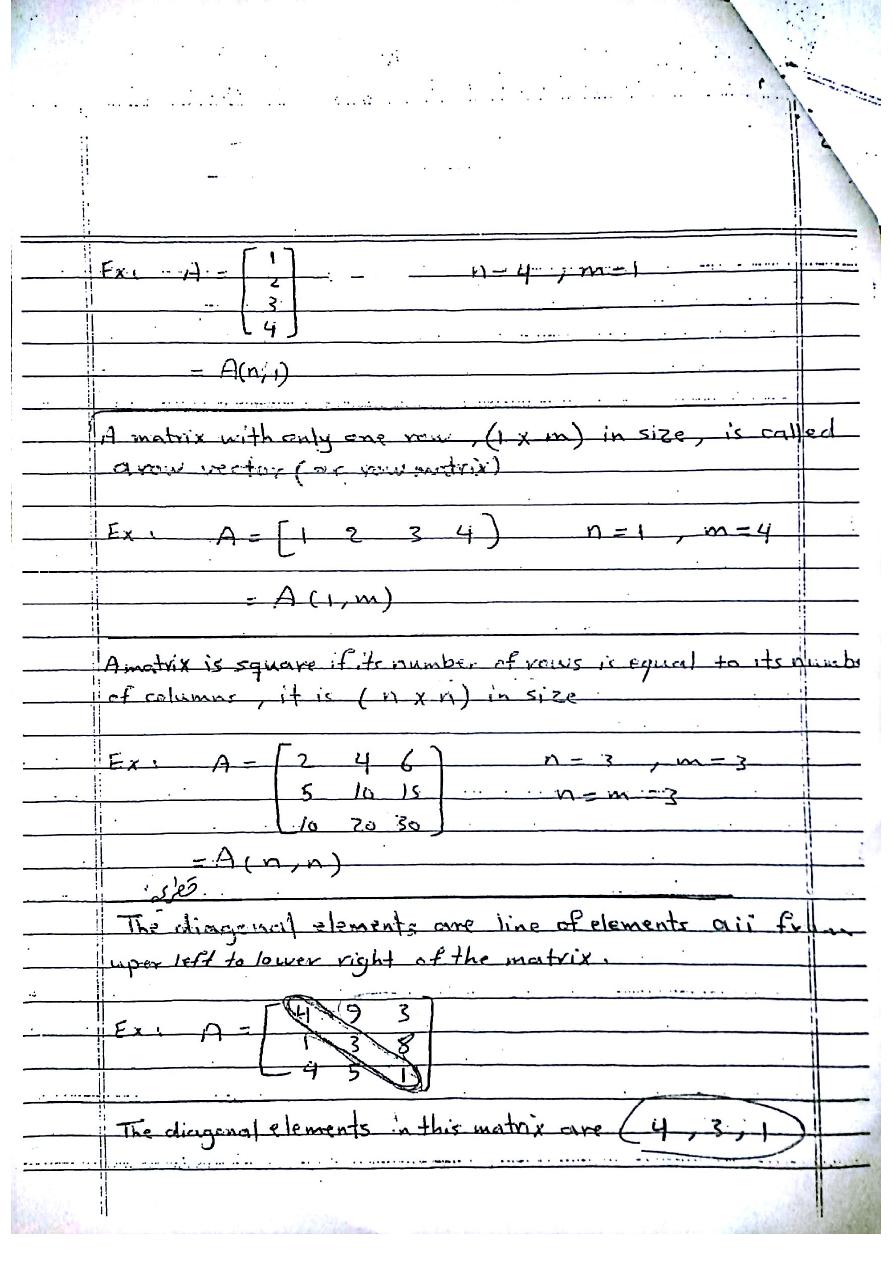 Ex: A = [ 1
2
3
4 ] n = 4 , m = 1
= A(n,1)
A matrix with only one row, (1 x m) in size, is called
a row vector (or row matrix)
Ex: A = [ 1 2 3 4 ) n = 1 , m = 4
= A (1,m)
A matrix is square if its number of rows is equal to its numbe
of columns, it is (n x n) in size
Ex: A = [ 2 4 6 n = 3 , m = 3
5 10 15 n = m = 3
10 20 30 ]
= A(n,n)
قطري
The diagonal elements are line of elements aii from
uper left to lower right of the matrix.
Ex: A = [ 4 9 3
1 3 8
4 5 1 ]
The diagonal elements in this matrix are (4,3,1)